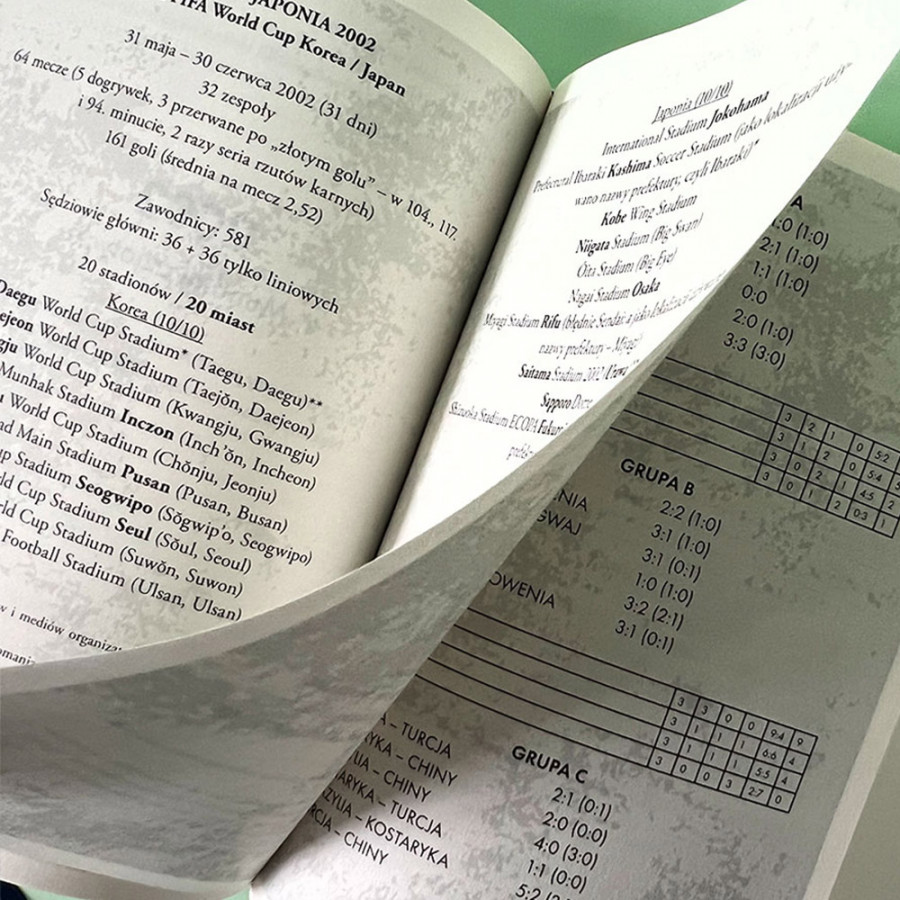 JAPONIA 2002
FIFA World Cup Korea / Japan
31 maja – 30 czerwca 2002 (31 dni)
32 zespoły
64 mecze (5 dogrywek, 3 przerwane po „złotym golu” – w 104., 117.
i 94. minucie, 2 razy seria rzutów karnych)
161 goli (średnia na mecz 2,52)
Zawodnicy: 581
Sędziowie główni: 36 + 36 tylko liniowych
20 stadionów / 20 miast
Korea (10/10)
Daegu World Cup Stadium* (Taegu, Daegu)**
World Cup Stadium (Taejŏn, Daejeon)
World Cup Stadium (Kwangju, Gwangju)
Munhak Stadium Inczon (Inch'ŏn, Incheon)
World Cup Stadium (Chŏnju, Jeonju)
Main Stadium Pusan (Pusan, Busan)
Stadium Seogwipo (Sŏgwip'o, Seogwipo)
Cup Stadium Seul (Sŏul, Seoul)
Cup Stadium (Suwŏn, Suwon)
Football Stadium (Ulsan, Ulsan)
w i mediów
Japonia (10/10)
International Stadium Jokohama
Prefectural Ibaraki Kashima Soccer Stadium (jako lokalizacji
wano nazwy prefektury, czyli Ibaraki)*
Kobe Wing Stadium
Niigata Stadium (Big Swan)
Ōita Stadium (Big Eye)
Nagai Stadium Osaka
Miyagi Stadium Rifu (błędnie Sendai, a jako lokalizacji
nazwy prefektury – Miyagi)
Saitama Stadium 2002
Sapporo
Stadium ECOPA
A
1:0 (1:0)
2:1 (1:0)
1:1 (1:0)
0:0
2:0 (1:0)
3:3 (3:0)
3 2 1 0 5:2
3 1 2 0 5:4 5
3 0 2 1 4:5 2
3 0 1 2 0:3 1
GRUPA B
2:2 (1:0)
3:1 (1:0)
3:1 (0:1)
1:0 (1:0)
3:2 (2:1)
3:1 (0:1)
3 3 0 0 9:4 9
3 1 1 1 6:6 4
3 1 1 1 5:5 4
3 0 0 3 2:7 0
GRUPA C
– TURCJA
– CHINY
– CHINY
– TURCJA
– KOSTARYKA
– CHINY
2:1 (0:1)
2:0 (0:0)
4:0 (3:0)
1:1 (0:0)
5:2